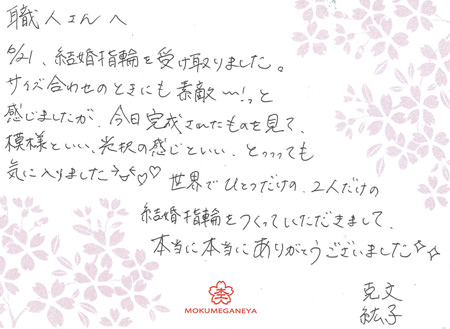 職人さんへ
6/21、結婚指輪を受け取りました。
サイズ合わせのときにも素敵〜!っと
感じましたが、今日完成されたものを見て、
模様といい、光沢の感じといい、とっっっても
気に入りました♡♡
世界でひとつだけの、2人だけの
結婚指輪をつくっていただきまして、
本当に本当にありがとうございました☆☆
克文
紘子
MOKUMEGANEYA